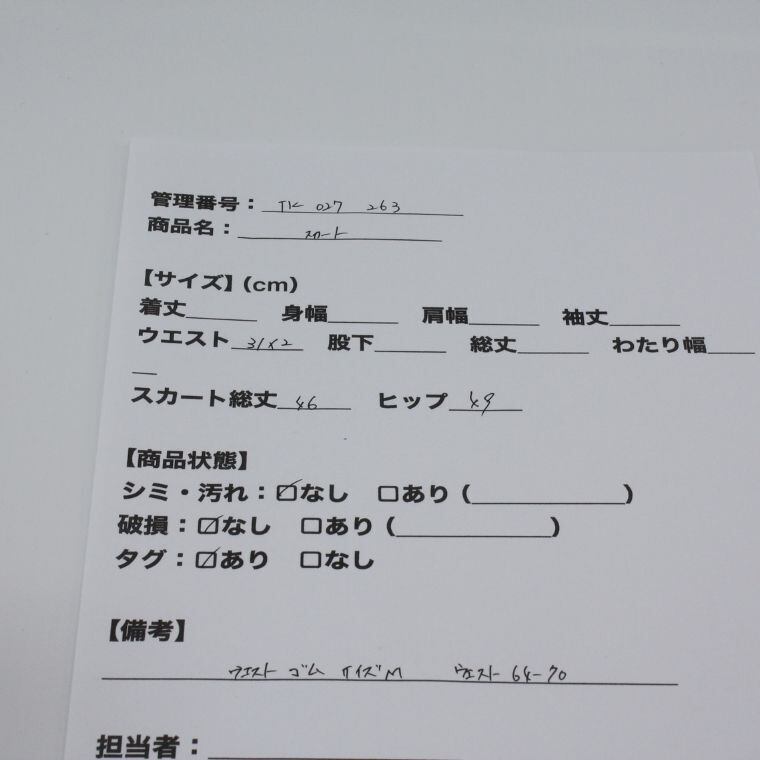 管理番号：TK 027 263
商品名：スカート
【サイズ】(cm)
着丈______ 身幅______ 肩幅______ 袖丈______
ウエスト 31×2 股下______ 総丈______ わたり幅____
__
スカート総丈 46 ヒップ 49
【商品状態】
シミ・汚れ：☑なし □あり（____________）
破損：☑なし □あり（____________）
タグ：☑あり □なし
【備考】
ウエスト ゴム サイズM ウエスト 64-70
担当者：